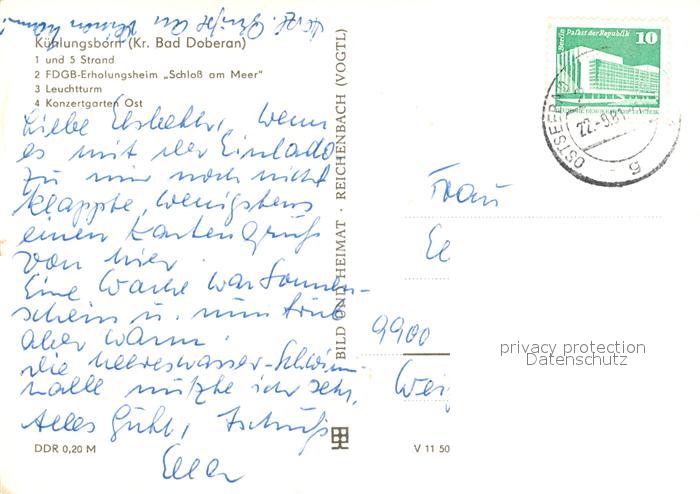 Herzl. Grüße an
Kühlungsborn (Kr. Bad Doberan)
1 und 5 Strand
2 FDGB-Erholungsheim „Schloß am Meer"
3 Leuchtturm
4 Konzertgarten Ost
Liebe wenn
es mit der Einladg
zu mir noch nicht
klappte, wenigstens
einen Kartengruß
von hier.
Eine Woche war Sonnen-
schein u. nun trüb
aber warm.
Die Meereswasser-Schwimm-
halle nutzte ich sehr.
Alles Gute, Tschüß
DDR 0,20 M
BILD UND HEIMAT · REICHENBACH (VOGTL)
V 11 50
Berlin Palast der Republik
10
OSTSEEBAD
22.-9.81
Frau
9900
privacy protection
Datenschutz